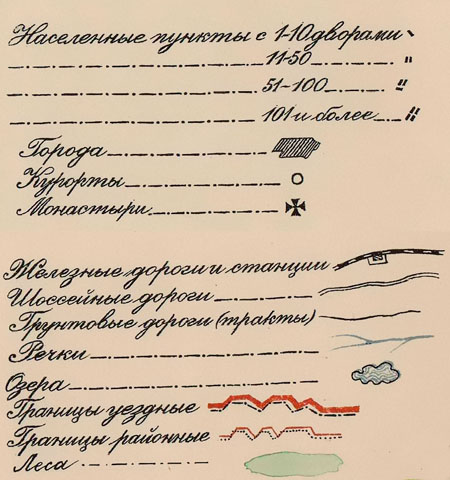 Населенные пункты с 1-10 дворами
11-50
51-100
101 и более
Города
Курорты
Монастыри
Железные дороги и станции
Шоссейные дороги
Грунтовые дороги (тракты)
Речки
Озера
Границы уездные
Границы районные
Леса